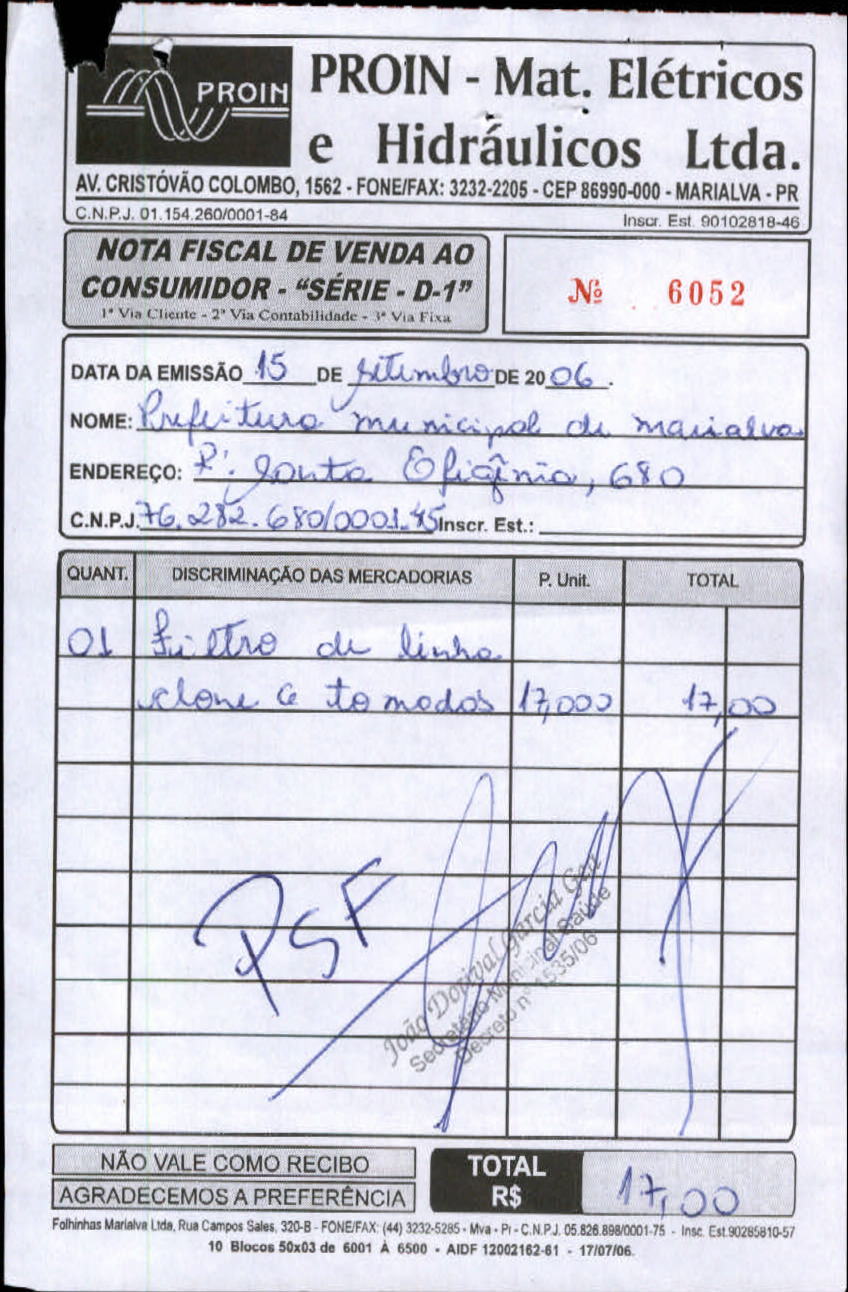 PROIN
PROIN - Mat. Elétricos
e Hidráulicos Ltda.
AV. CRISTÓVÃO COLOMBO, 1562 - FONE/FAX: 3232-2205 - CEP 86990-000 - MARIALVA - PR
C.N.P.J. 01.154.260/0001-84 Inscr. Est. 90102818-46
NOTA FISCAL DE VENDA AO
CONSUMIDOR - “SÉRIE - D-1”
1ª Via Cliente - 2ª Via Contabilidade - 3ª Via Fixa
Nº 6052
DATA DA EMISSÃO 15 DE setembro DE 2006.
NOME: Prefeitura municipal de marialva
ENDEREÇO: R: Santa Efigênia, 680
C.N.P.J. 76.282.680/0001.45 Inscr. Est.:
QUANT. DISCRIMINAÇÃO DAS MERCADORIAS P. Unit. TOTAL
01 Filtro de linha
clone 6 tomadas 17,000 17,00
PSF
João Dorival Garcia
Secretário Municipal Saúde
Decreto nº 1535/06
NÃO VALE COMO RECIBO
AGRADECEMOS A PREFERÊNCIA
TOTAL
R$ 17,00
Folhinhas Marialva Ltda, Rua Campos Sales, 320-B - FONE/FAX: (44) 3232-5285 - Mva - Pr - C.N.P.J. 05.826.898/0001-75 - Insc. Est.90285810-57
10 Blocos 50x03 de 6001 À 6500 - AIDF 12002162-61 - 17/07/06.